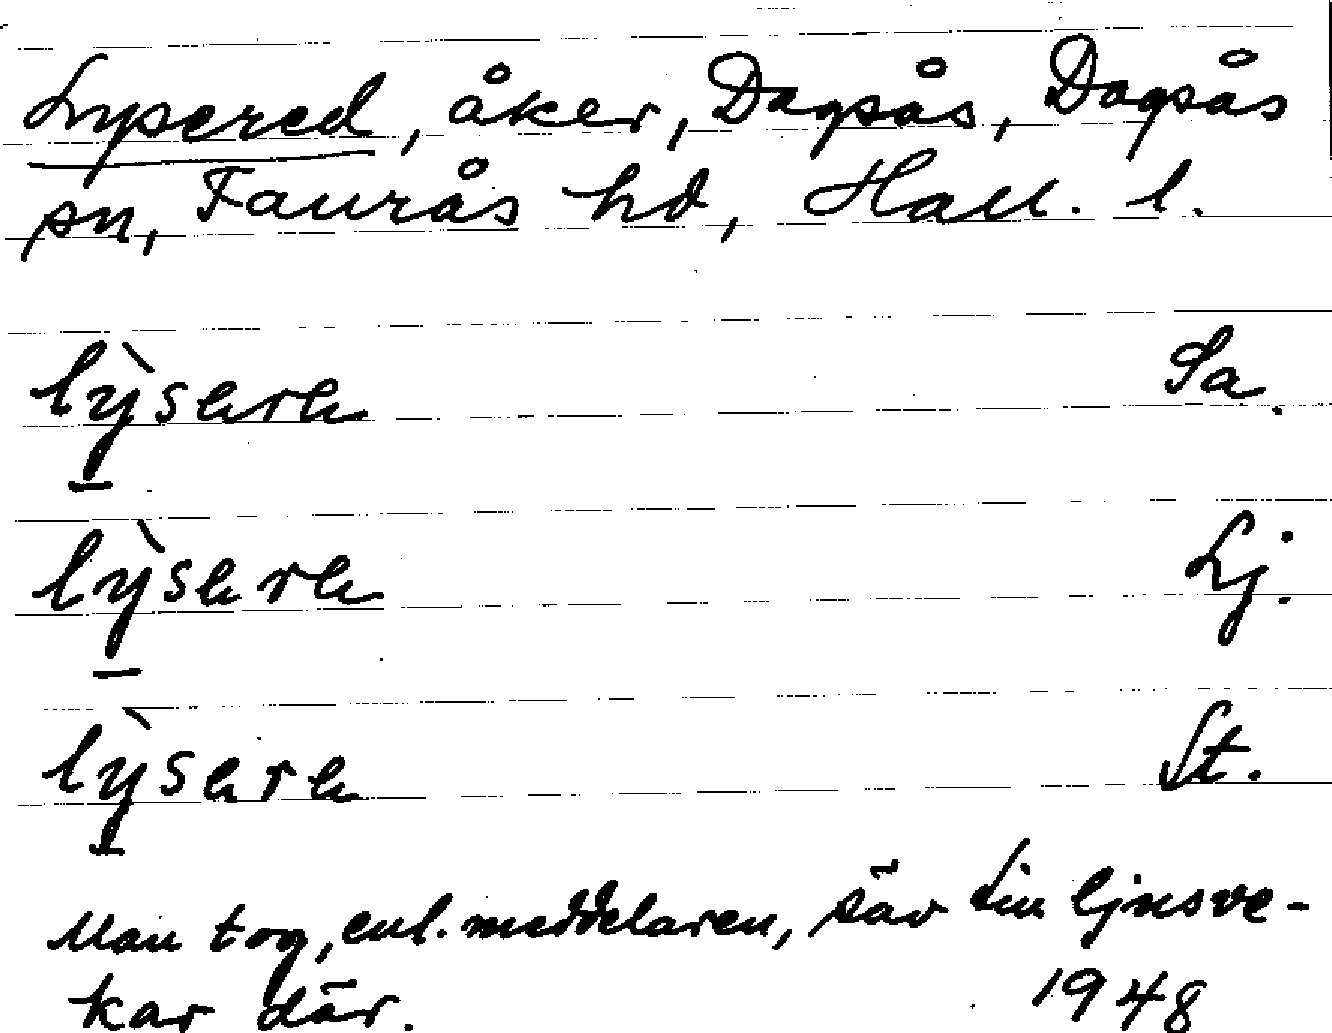 Lysered, åker, Dagsås, Dagsås
sn, Faurås hd, Hall. l.
lỳsere Sa.
lỳsere Lj.
lỳsere St.
Man tog, enl. meddelaren, säv till ljusve-
kar där. 1948